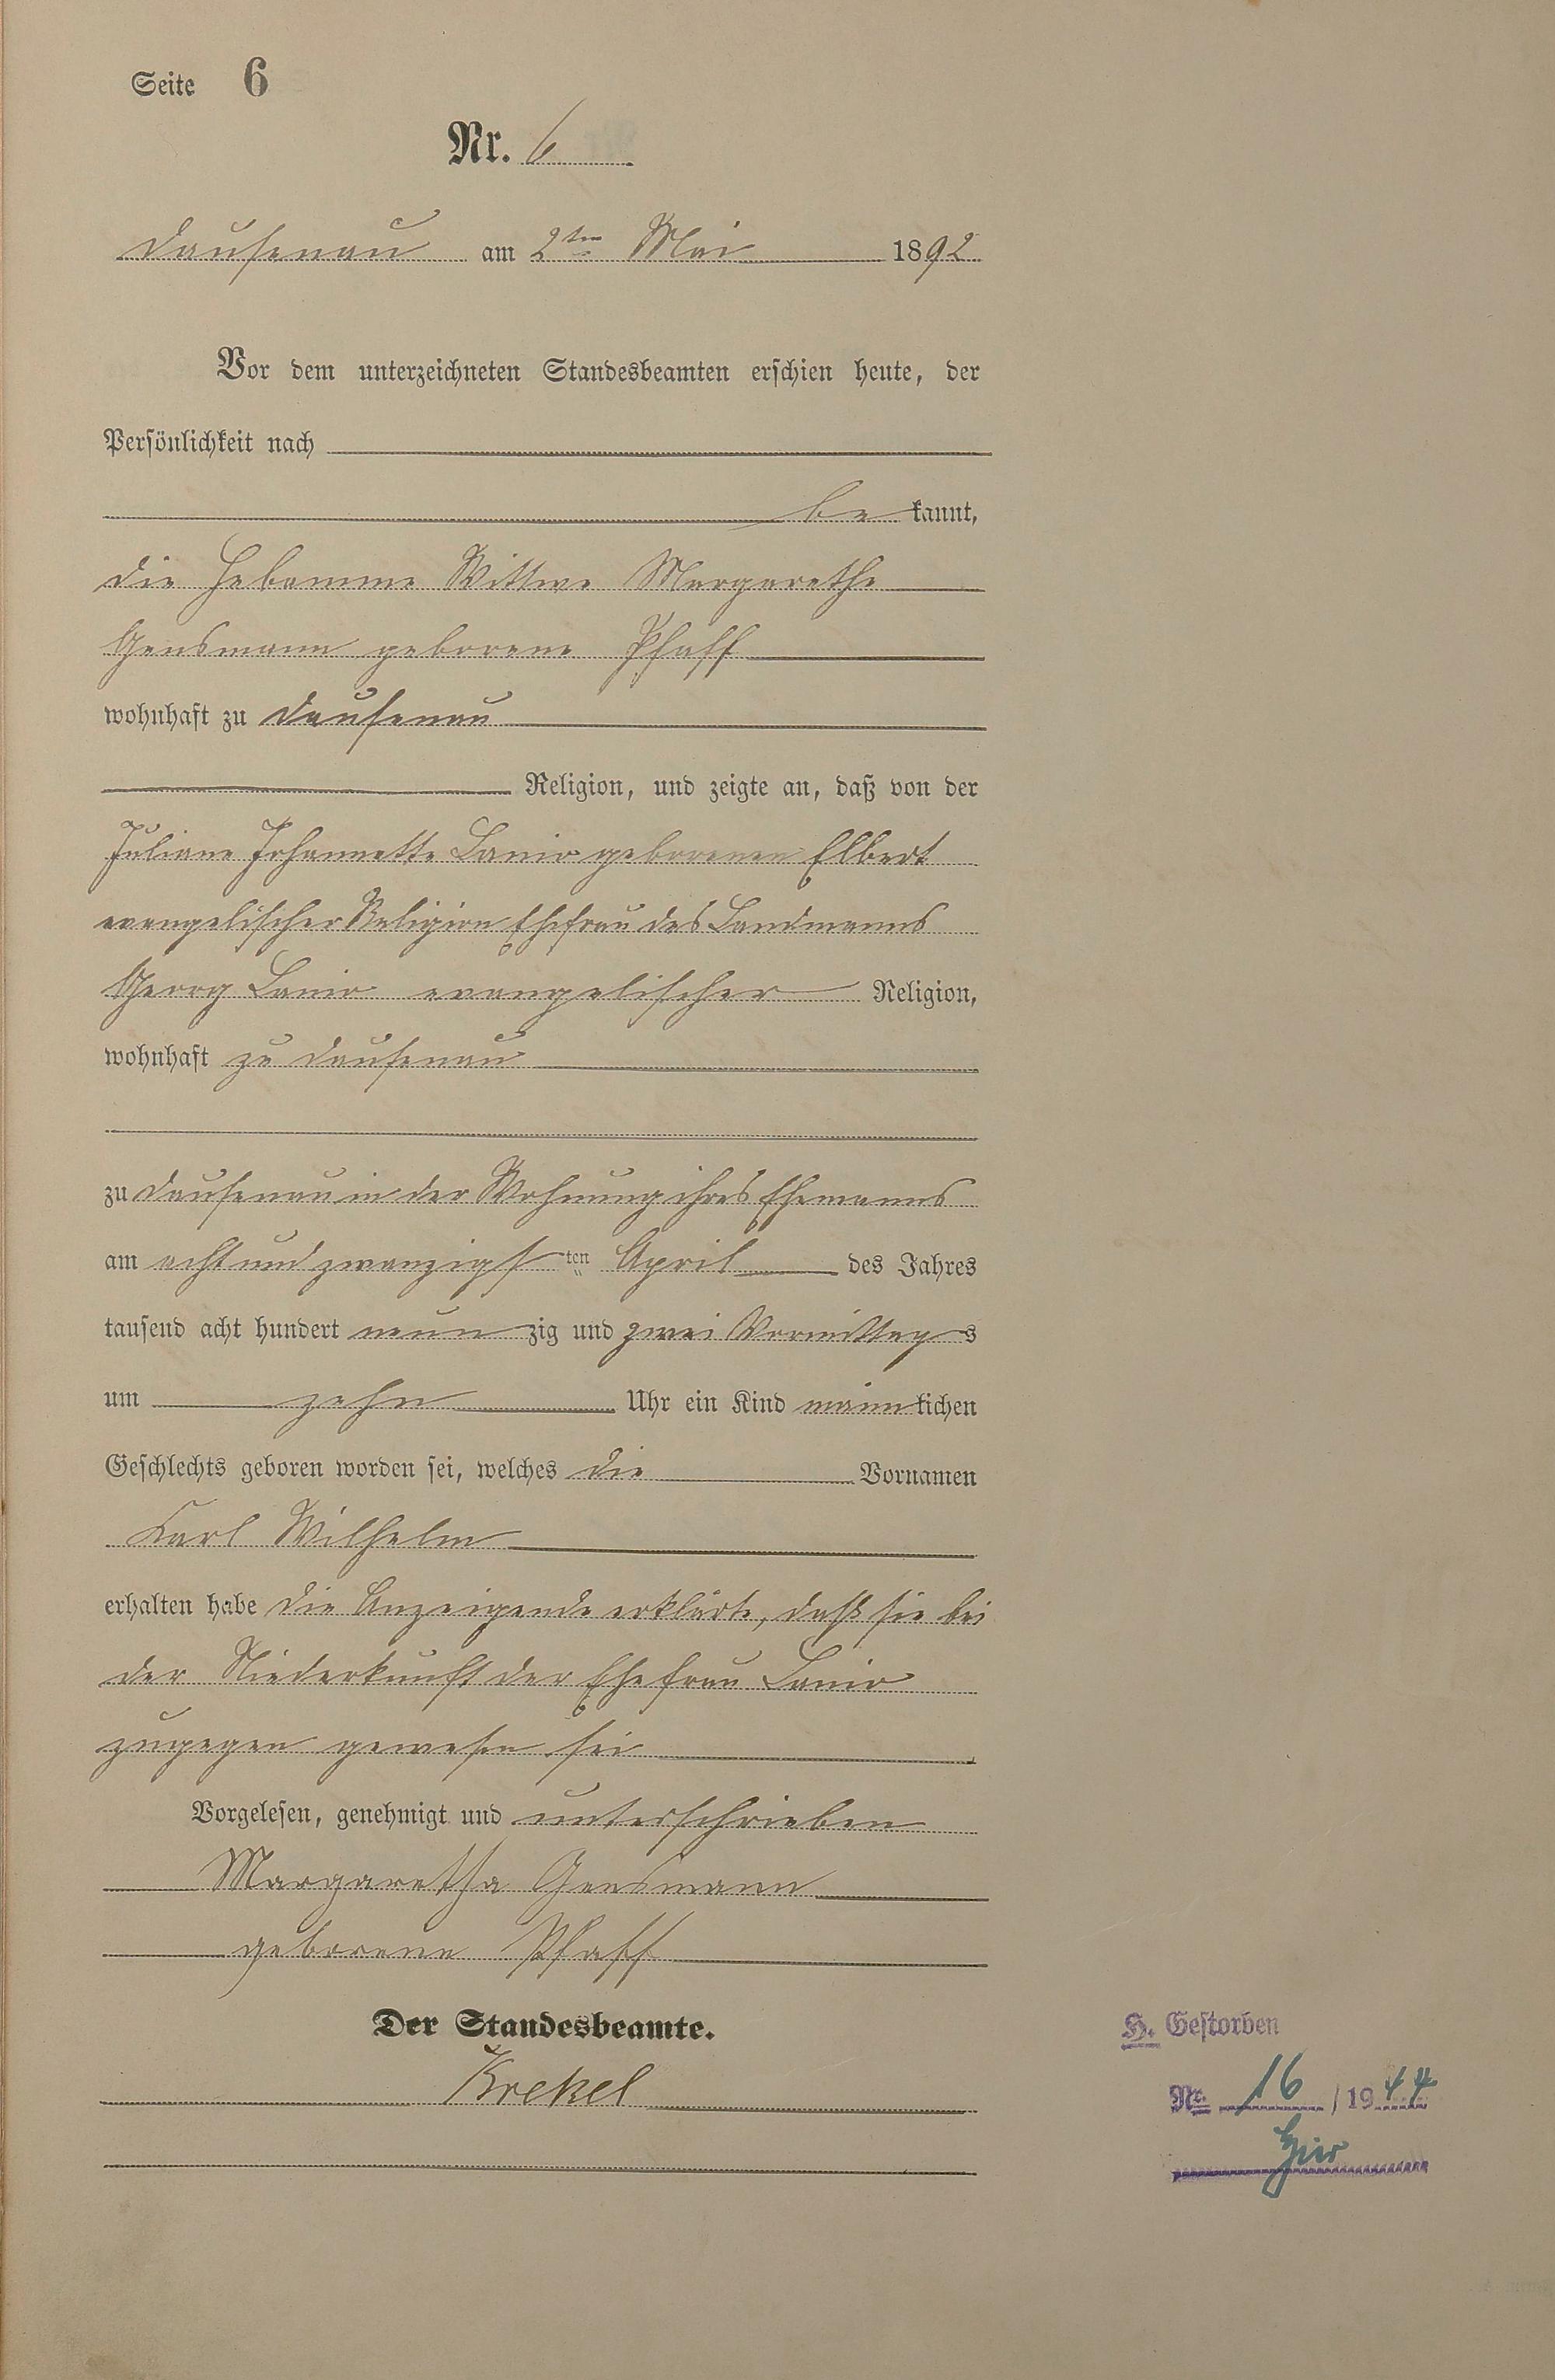 Seite 6
Nr. 6
Dausenau am 2ten Mai 1892
Vor dem unterzeichneten Standesbeamten erschien heute, der
Persönlichkeit nach
be kannt,
die Hebamme Wittwe Margarethe
Gensmann geborene Pfaff
wohnhaft zu Dausenau
Religion, und zeigte an, daß von der
Juliane Johannette Lanio geborenen Elbert
evangelischer Religion Ehefrau des Landmanns
Georg Lanio evangelischer Religion,
wohnhaft zu Dausenau
zu Dausenau in der Wohnung ihres Ehemanns
am acht und zwanzigsten April des Jahres
tausend acht hundert neunzig und zwei Vormittags
um zehn Uhr ein Kind männlichen
Geschlechts geboren worden sei, welches die Vornamen
Karl Wilhelm
erhalten habe die Anzeigende erklärte, daß sie bei
der Niederkunft der Ehefrau Lanio
zugegen gewesen sei
Vorgelesen, genehmigt und unterschrieben
Margaretha Gensmann
geborene Pfaff
Der Standesbeamte.
Krekel
H. Gestorben
Nr. 16 / 1944
hier